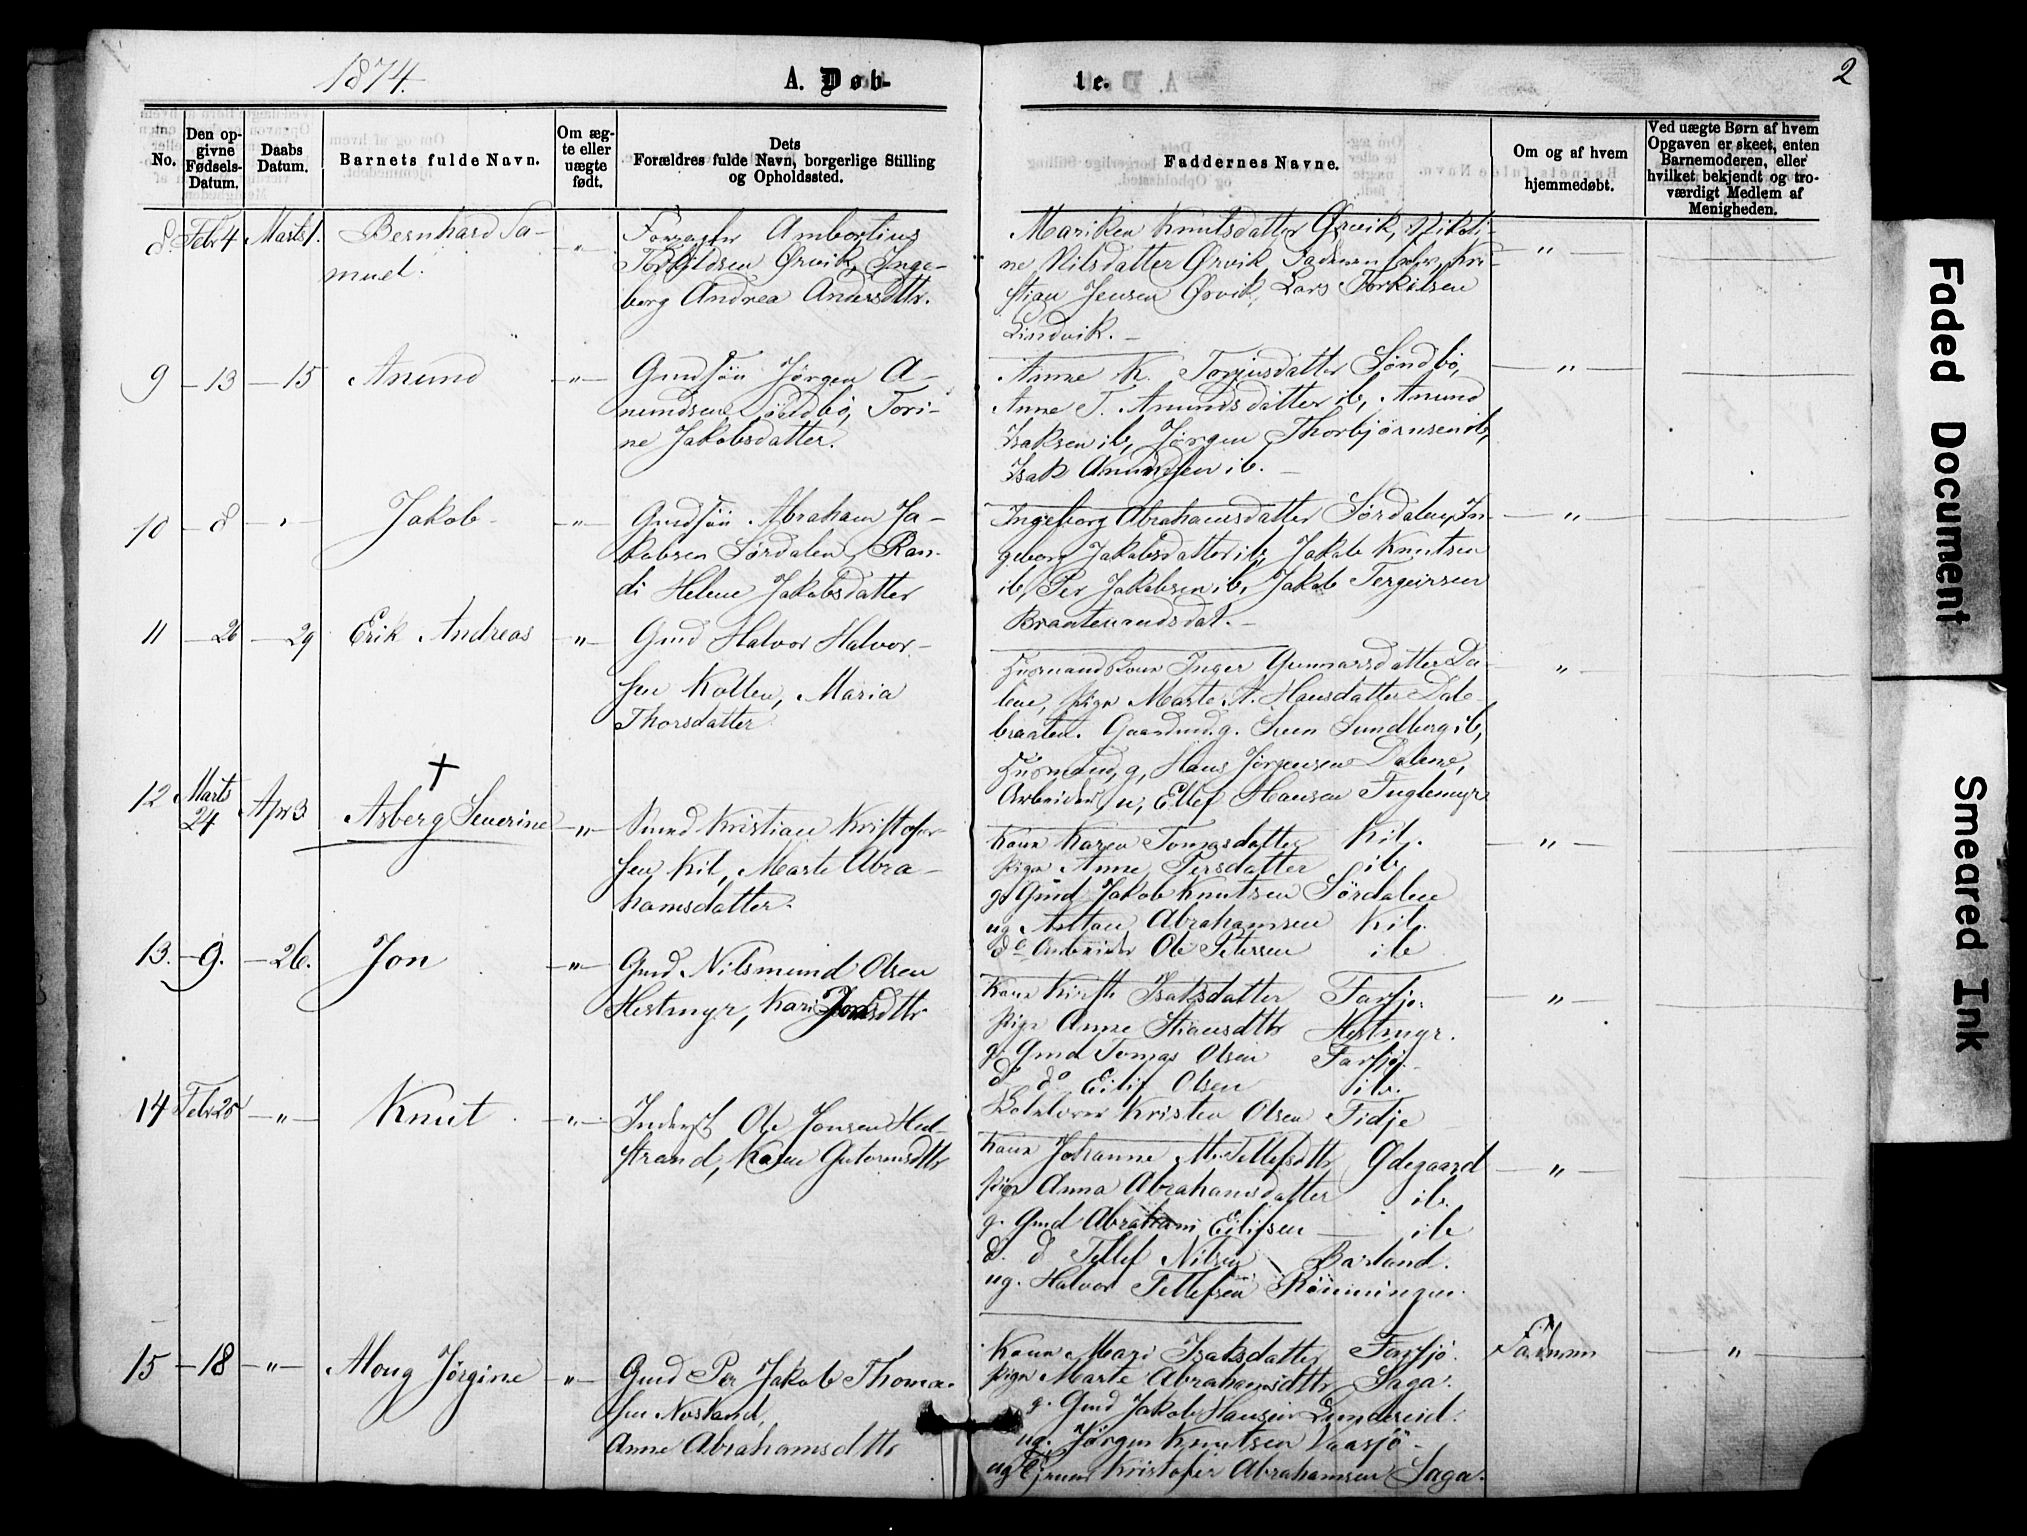 1874.
A. Døb-
te.
2
No.
Den op-
givne
Fødsels-
Datum.
Daabs
Datum.
Barnets fulde Navn.
Om æg-
te eller
uægte
født.
Dets
Forældres fulde Navn, borgerlige Stilling
og Opholdssted.
Faddernes Navne.
Om og af hvem
hjemmedøbt.
Ved uægte Børn af hvem
Opgaven er skeet, enten
Barnemoderen, eller
hvilket bekjendt og tro-
værdigt Medlem af
Menigheden.
8. Febr 4 Marts 1. Bernhard Sa-
muel.
Ambortius
Torkildsen Ørvik, Inge-
borg Andrea Andersdttr.
Mariken Knutsdatter Ørvik, Nikoli-
ne Nilsdatter Ørvik, Faderen selv, Kri-
stian Jensen Ørvik, Lars Torkilsen
Lindvik. -
"
9 - 13 - 15 Anund - " -
Jørgen A-
nundsen Söndbö, Tori-
ne Jakobsdatter.
Anne K. Torjusdatter Söndbö,
Anne T. Anundsdatter ib, Anund
Isaksen ib, Jörgen Thorbjørnsen ib,
Isak Anundsen ib. -
"
10 - 8 - " Jakob - " -
Abraham Ja-
kobsen Sördalen, Ran-
di Helene Jakobsdatter
Ingeborg Abrahamsdatter Sørdalen, In-
geborg Jakobsdatter ib, Jakob Knutsen
ib, Per Jakobsen ib, Jakob Tergeirsen
Braatenaadsdal. -
"
11 - 26 - 29 Erik Andreas - " -
Gmd Halvor Halvor-
sen Kolten, Maria
Thorsdatter
Husmandskone Inger Gunnarsdatter Da-
lene, Pige Marte A. Hansdatter Dale-
braaten. Gaardmd. g. Sven Sundberg ib,
Husmand, g, Hans Jörgensen Dalene,
Arbeider, u, Ellef Hansen Fuglemyr
"
12 Marts
24 Apr 3. Asberg Severine - " -
Smed Kristian Kristofer-
sen Kil, Marte Abra-
hamsdatter.
Kone Karen Tomasdatter Kil.
Pige Anne Persdatter ib.
g. Gmd Jakob Knutsen Sördalen
ug. Abrahamsen Kil.
do Arbeider Ole Petersen ib
"
13. - 9. - 26. Jon - " -
Gmd Nilsmund Olsen
Hestmyr, Kari Jonsdttr
Kone Kirsti Isaksdatter Farsjö.
Pige Anne Stiansdttr Hestmyr.
g. Gmd Tomas Olsen Farsjö.
d. do Eilif Olsen ib.
Kristen Olsen Fidje
"
14 Febr 25 - " - Knut - " -
Inderst Ole Jonsen Hul-
strand, Karen Gutormsdttr
Kone Johanne M. Tellefsdttr Ødegaard
Pige Anna Abrahamsdatter ib.
g. Gmd Abraham Eilifsen ib
d. d Tellef Nilsen Barland.
ug. Halvor Tellefsen Rönningen.
"
15 - 18 - " - Aloug Jørgine - " -
Gmd Per Jakob Thoma-
sen Nesland,
Anne Abrahamsdttr
Kone Mari Isaksdatter Farsjö.
Pige Marte Abrahamsdttr Saga.
g. Gmd Jakob Hansen Lundereid.
ug. Jørgen Knutsen Vaasjö.
ug Kristofer Abrahamsen Saga.
Faderen
"
Faded Document
Smeared Ink